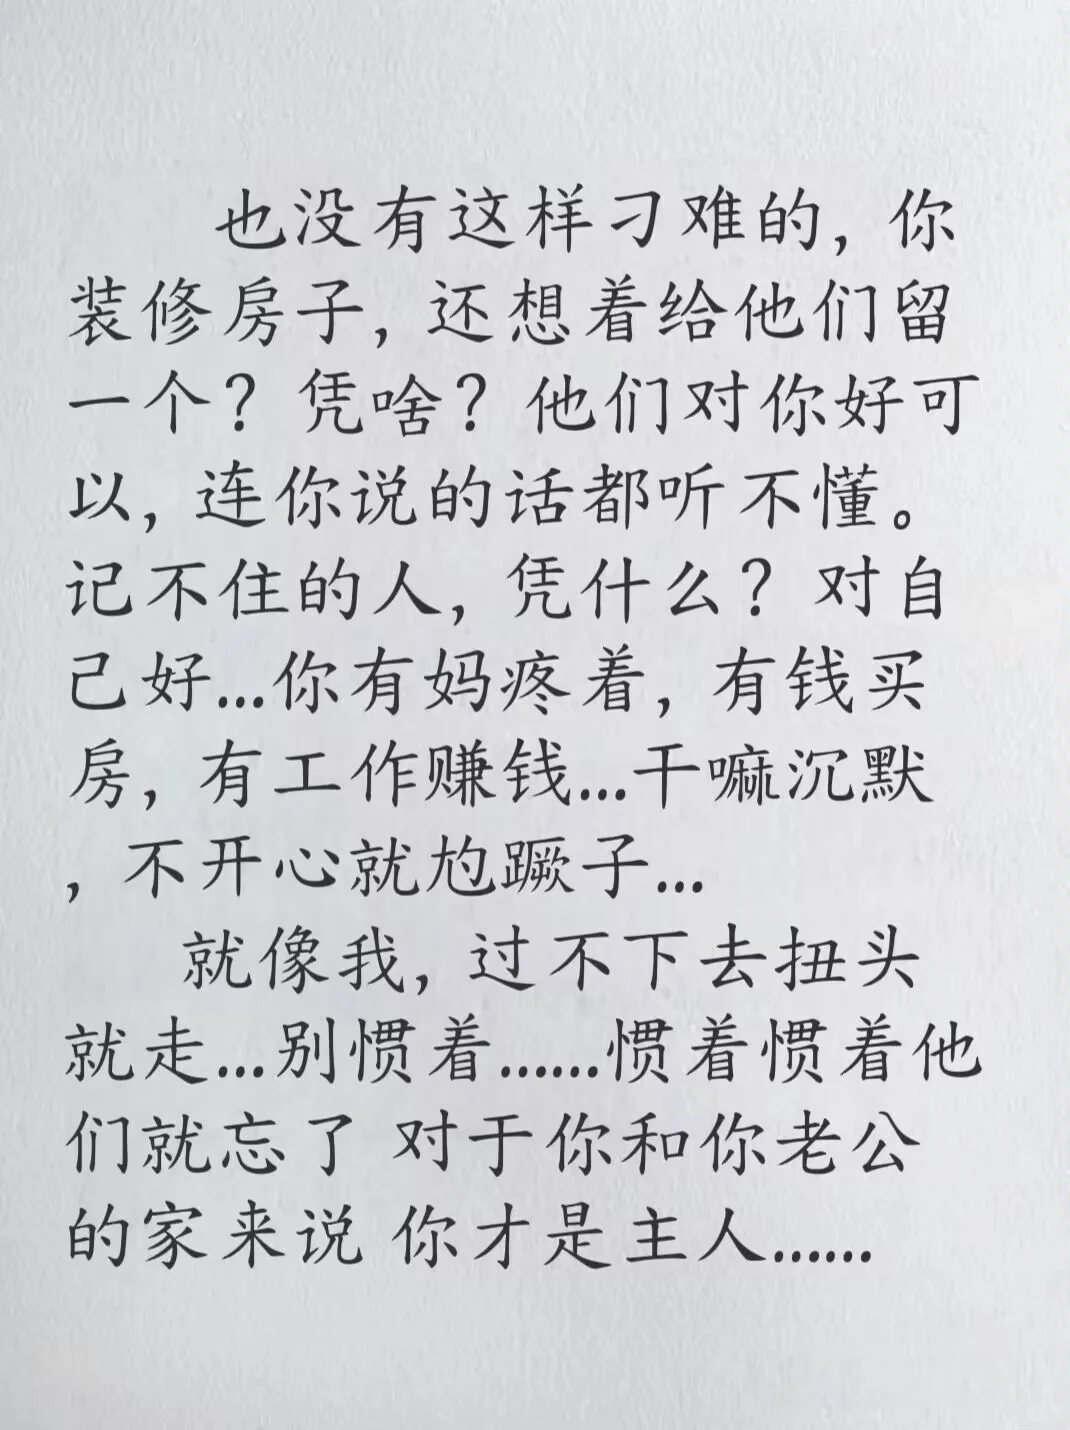 也没有这样刁难的，你
装修房子，还想着给他们留
一个？凭啥？他们对你好可
以，连你说的话都听不懂。
记不住的人，凭什么？对自
己好...你有妈疼着，有钱买
房，有工作赚钱...干嘛沉默
，不开心就尥蹶子...
就像我，过不下去扭头
就走...别惯着......惯着惯着他
们就忘了 对于你和你老公
的家来说 你才是主人......